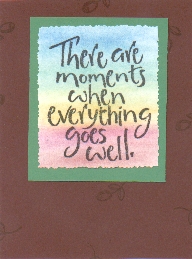 There are
moments
when
everything
goes
well.